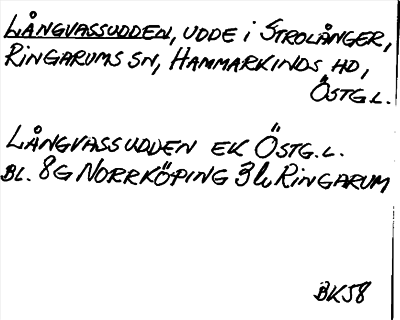 LÅNGVASSUDDEN, UDDE i STROLÅNGER,
RINGARUMS SN, HAMMARKINDS HD,
ÖSTGL.
LÅNGVASSUDDEN EK ÖSTG.L.
BL. 8G NORRKÖPING 3h RINGARUM
BK58